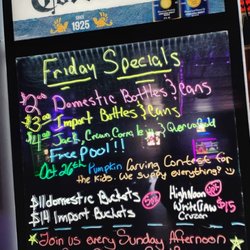 SINCE 1925
Friday Specials
$2.00 Domestic Bottles & Cans
$3.00 Import Bottles & Cans
$4.00 Jack, Crown, &
Free Pool!!
Oct 26th Pumpkin Carving Contest for
the kids. We supply everything! :)
$11 domestic Buckets
$14 Import Buckets
High Noon
White Claw $15
Cruzan
Join us every Sunday Afternoon